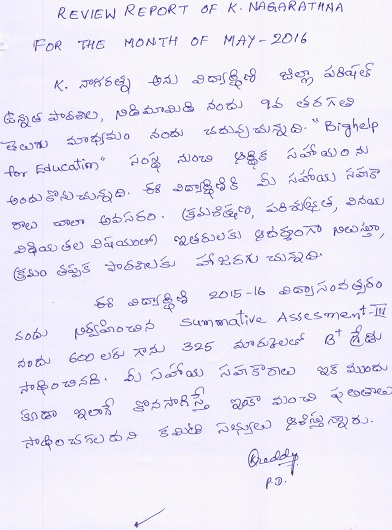 REVIEW REPORT OF K. NAGARATHNA
FOR THE MONTH OF MAY - 2016
K. నాగరత్న అను విద్యార్థిణి జిల్లా పరిషత్
ఉన్నత పాఠశాల, నిడిమామిడి నందు 9వ తరగతి
తెలుగు మాధ్యమం నందు చదువుచున్నది. "Bighelp
for Education" సంస్థ నుంచి ఆర్థిక సహాయంను
అందుకొనుచున్నది. ఈ విద్యార్థిణికి మీ సహాయ సహకా
రాలు చాలా అవసరం. క్రమశిక్షణ, పరిశుభ్రత, వినయ
విధేయతల విషయంలో ఇతరులకు ఆదర్శంగా నిలుస్తూ,
క్రమం తప్పక పాఠశాలకు హాజరగుచున్నది.
ఈ విద్యార్థిణి 2015-16 విద్యాసంవత్సరం
నందు నిర్వహించిన Summative Assesment-III
నందు 600 లకు గాను 325 మార్కులతో B+ గ్రేడు
సాధించినది. మీ సహాయ సహకారాలు ఇక ముందు
కూడా ఇలాగే కొనసాగిస్తే ఇంకా మంచి ఫలితాలు
సాధించగలదని కమిటీ సభ్యులు ఆశిస్తున్నారు.
P.D.